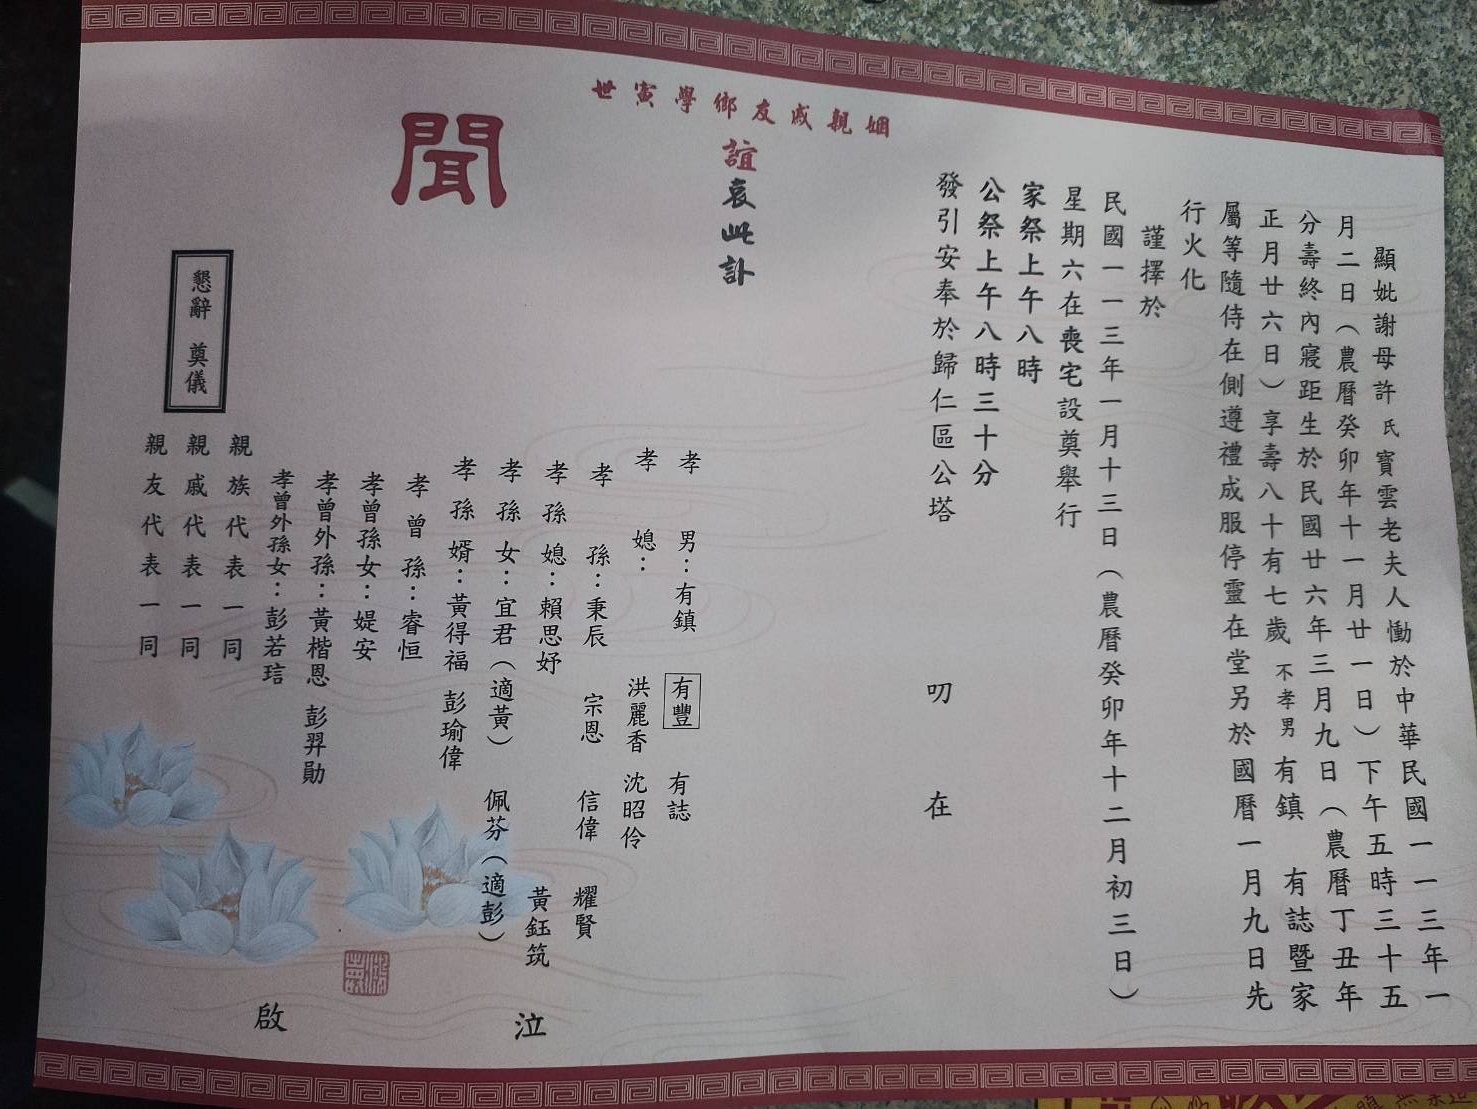 顯妣謝母許氏寶雲老夫人慟於中華民國一一三年一
月二日（農曆癸卯年十一月廿一日）下午五時三十五
分壽終內寢距生於民國廿六年三月九日（農曆丁丑年
正月廿六日）享壽八十有七歲不孝男有鎮 有誌暨家
屬等隨侍在側遵禮成服停靈在堂另於國曆一月九日先
行火化
謹擇於
民國一一三年一月十三日（農曆癸卯年十二月初三日）
星期六在喪宅設奠舉行
家祭上午八時
公祭上午八時三十分
發引安奉於歸仁區公塔
叨在
姻親戚友鄉學寅世
誼哀此訃
聞
孝男：有鎮 有豐 有誌
孝媳： 洪麗香 沈昭伶
孝孫：秉辰 宗恩 信偉 耀賢
孝孫媳：賴思妤 黃鈺筑
孝孫女：宜君（適黃） 佩芬（適彭）
孝孫婿：黃得福 彭瑜偉
孝曾孫：睿恒
孝曾孫女：媞安
孝曾外孫：黃楷恩 彭羿勛
孝曾外孫女：彭若琂
親族代表一同
親戚代表一同
親友代表一同
泣
啟
懇辭 奠儀